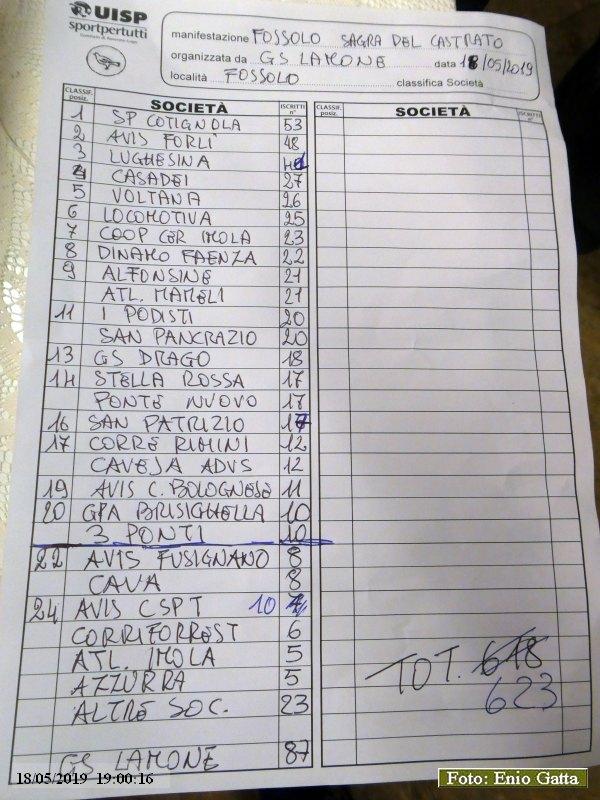 UISP
sportpertutti
manifestazione FOSSOLO SAGRA DEL CASTRATO
organizzata da GS LAMONE data 18/05/2019
località FOSSOLO classifica Società
CLASSIF. posiz. SOCIETÀ ISCRITTI n° CLASSIF. posiz. SOCIETÀ ISCRITTI n°
1 SP COTIGNOLA 53
2 AVIS FORLI' 48
3 LUGHESINA
4 CASADEI 27
5 VOLTANA 26
6 LOCOMOTIVA 25
7 COOP CER IMOLA 23
8 DINAMO FAENZA 22
9 ALFONSINE 21
ATL. MAMELI 21
11 I PODISTI 20
SAN PANCRAZIO 20
13 GS DRAGO 18
14 STELLA ROSSA 17
PONTE NUOVO 17
16 SAN PATRIZIO
17 CORRE RIMINI 12
CAVEJA ADVS 12
19 AVIS C. BOLOGNESE 11
20 GPA BRISIGHELLA 10
3 PONTI 10
22 AVIS FUSIGNANO 8
CAVA 8
24 AVIS CSPT 10 7
CORRIFORREST 6
ATL. IMOLA 5
AZZURRA 5
ALTRE SOC. 23
GS LAMONE 87
TOT. 618
623
18/05/2019 19:00:16
Foto: Enio Gatta